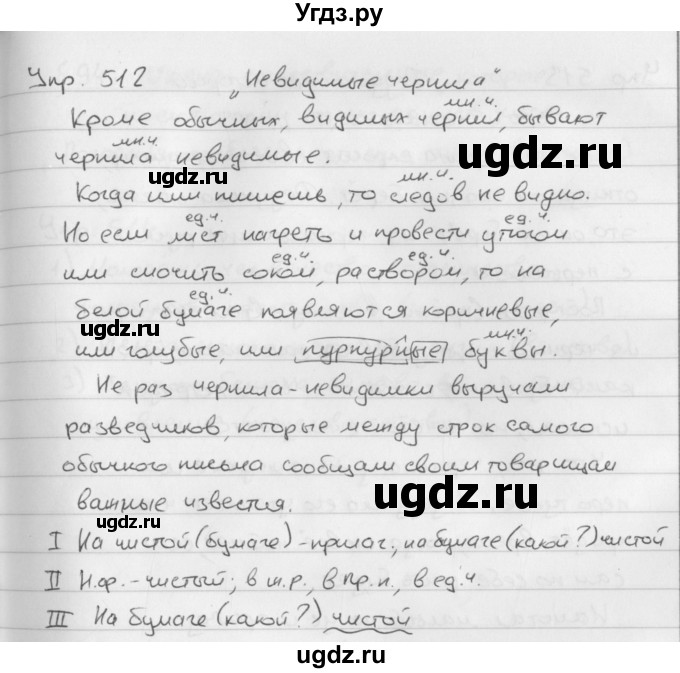 Угдз.ру
Упр. 512 „Невидимые чернила"
мн.ч.
Кроме обычных, видимых чернил, бывают
мн.ч.
чернила невидимые.
ugdz.ru
мн.ч.
Когда ими пишешь, то следов не видно.
ugdz.ru
ед.ч. ед.ч.
Но если лист нагреть и провести утюгом
ед.ч.
или смочить соком, раствором, то на
ед.ч.
белой бумаге появляются коричневые,
ugdz.ru
мн.ч.
или голубые, или пурпурные буквы.
Не раз чернила-невидимки выручали
разведчиков, которые между строк самого
обычного письма сообщали своим товарищам
ugdz.ru
важные известия.
I На чистой (бумаге) - прилаг; на бумаге (какой?) чистой
II Н.ф. - чистый; в ж.р., в пр.п, в ед.ч.
III На бумаге (какой?) чистой
ugdz.ru
ugdz.ru